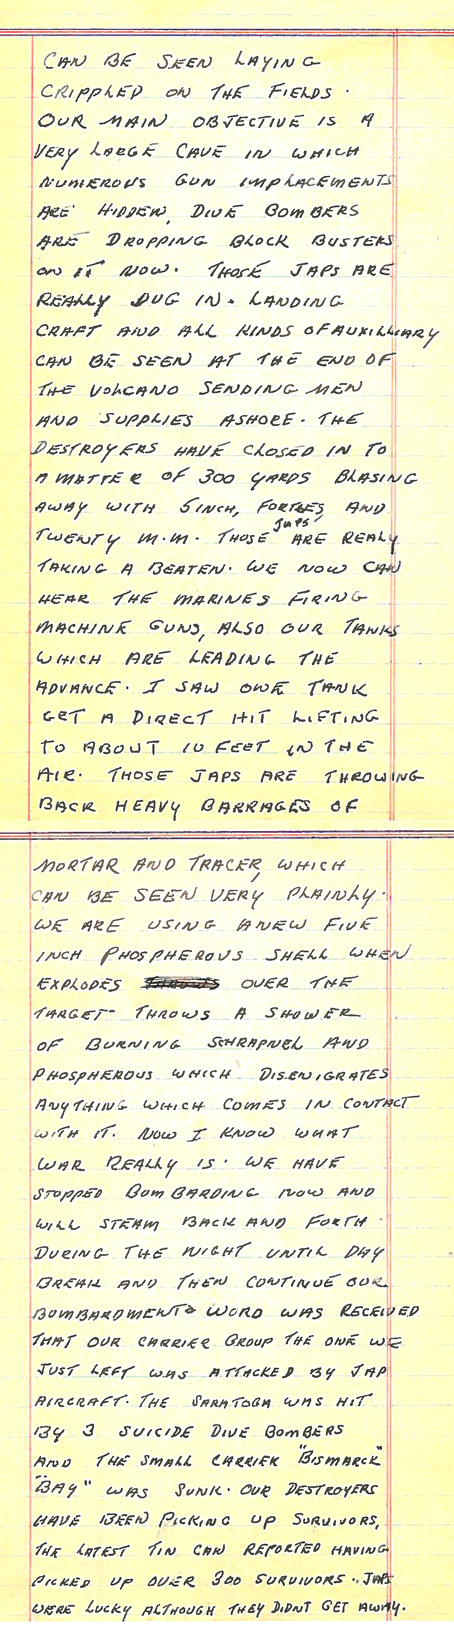 CAN BE SEEN LAYING
CRIPPLED ON THE FIELDS.
OUR MAIN OBJECTIVE IS A
VERY LARGE CAVE IN WHICH
NUMEROUS GUN IMPLACEMENTS
ARE HIDDEN, DIVE BOMBERS
ARE DROPPING BLOCK BUSTERS
ON IT NOW. THOSE JAPS ARE
REALLY DUG IN. LANDING
CRAFT AND ALL KINDS OF AUXILLIARY
CAN BE SEEN AT THE END OF
THE VOLCANO SENDING MEN
AND SUPPLIES ASHORE. THE
DESTROYERS HAVE CLOSED IN TO
A MATTER OF 300 YARDS BLASING
AWAY WITH 5INCH, FORTIES, AND
TWENTY M.M. THOSE JAPS, ARE REALY
TAKING A BEATEN. WE NOW CAN
HEAR THE MARINES FIRING
MACHINE GUNS, ALSO OUR TANKS
WHICH ARE LEADING THE
ADVANCE. I SAW ONE TANK
GET A DIRECT HIT LIFTING
TO ABOUT 10 FEET IN THE
AIR. THOSE JAPS ARE THROWING
BACK HEAVY BARRAGES OF
MORTAR AND TRACER, WHICH
CAN BE SEEN VERY PLAINLY.
WE ARE USING A NEW FIVE
INCH PHOSPHEROUS SHELL WHEN
EXPLODES OVER THE
TARGET- THROWS A SHOWER
OF BURNING SCHRAPNEL AND
PHOSPHEROUS WHICH DISENIGRATES
ANYTHING WHICH COMES IN CONTACT
WITH IT. NOW I KNOW WHAT
WAR REALLY IS. WE HAVE
STOPPED BOMBARDING NOW AND
WILL STEAM BACK AND FORTH
DURING THE NIGHT UNTIL DAY
BREAK AND THEN CONTINUE OUR
BOMBARDMENT. WORD WAS RECEIVED
THAT OUR CARRIER GROUP THE ONE WE
JUST LEFT WAS ATTACKED BY JAP
AIRCRAFT. THE SARATOGA WAS HIT
BY 3 SUICIDE DIVE BOMBERS
AND THE SMALL CARRIER "BISMARCK"
"BAY" WAS SUNK. OUR DESTROYERS
HAVE BEEN PICKING UP SURVIVORS,
THE LATEST TIN CAN REPORTED HAVING
PICKED UP OVER 300 SURVIVORS. JAPS
WERE LUCKY ALTHOUGH THEY DIDNT GET AWAY.